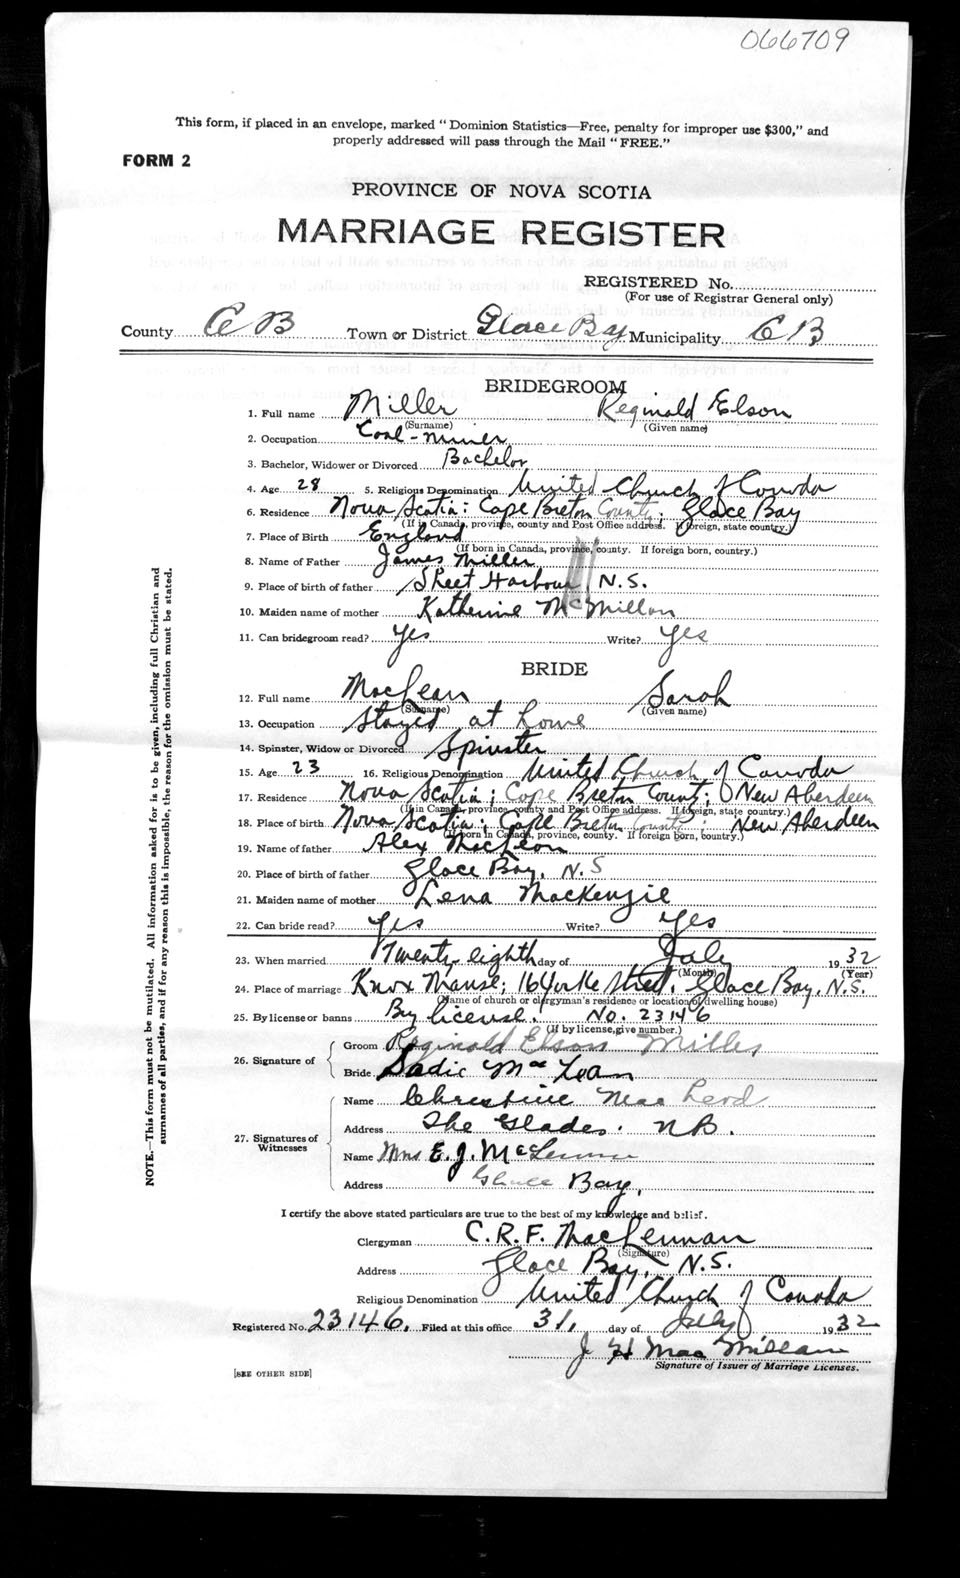 066709
This form, if placed in an envelope, marked "Dominion Statistics—Free, penalty for improper use $300," and
properly addressed will pass through the Mail "FREE."
FORM 2
PROVINCE OF NOVA SCOTIA
MARRIAGE REGISTER
REGISTERED No.
(For use of Registrar General only)
County C B Town or District Glace Bay Municipality C B
BRIDEGROOM
1. Full name Miller Reginald Elson
(Surname) (Given name)
2. Occupation Coal-miner
3. Bachelor, Widower or Divorced Bachelor
4. Age 28 5. Religious Denomination United Church of Canada
6. Residence Nova Scotia: Cape Breton County; Glace Bay
(If in Canada, province, county and Post Office address. If foreign, state country.)
7. Place of Birth England
(If born in Canada, province, county. If foreign born, country.)
8. Name of Father James Miller
9. Place of birth of father Sheet Harbour N.S.
10. Maiden name of mother Katherine McMillan
11. Can bridegroom read? Yes Write? Yes
BRIDE
12. Full name MacLean Sarah
(Surname) (Given name)
13. Occupation Stayed at home
14. Spinster, Widow or Divorced Spinster
15. Age 23 16. Religious Denomination United Church of Canada
17. Residence Nova Scotia; Cape Breton County; New Aberdeen
(If in Canada, province county and Post Office address. If foreign, state country.)
18. Place of birth Nova Scotia; Cape Breton County; New Aberdeen
(If born in Canada, province, county. If foreign born, country.)
19. Name of father Alex MacLean
20. Place of birth of father Glace Bay, N.S
21. Maiden name of mother Lena MacKenzie
22. Can bride read? Yes Write? Yes
23. When married Twenty-eighth day of July 1932
(Month) (Year)
24. Place of marriage Knox Manse; 16 York Street, Glace Bay, N.S.
(Name of church or clergyman's residence or location of dwelling house)
25. By license or banns By license. No. 23146
(If by license, give number.)
26. Signature of
Groom Reginald Elson Miller
Bride Sadie MacLean
27. Signatures of Witnesses
Name Christine MacLeod
Address The Glades. N.B.
Name Mrs E. J. McLennan
Address Glace Bay,
I certify the above stated particulars are true to the best of my knowledge and belief.
Clergyman C. R. F. MacLennan
(Signature)
Address Glace Bay, N.S.
Religious Denomination United Church of Canada
Registered No. 23146. Filed at this office 31, day of July 1932
J H MacMillan
Signature of Issuer of Marriage Licenses.
[SEE OTHER SIDE]
NOTE.—This form must not be mutilated. All information asked for is to be given, including full Christian and
surnames of all parties, and if for any reason this is impossible, the reason for the omission must be stated.